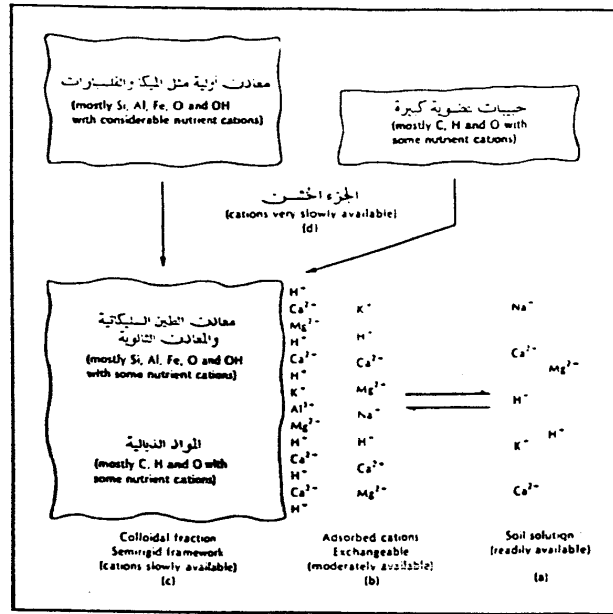 معادن أولية مثل الميكا والفلسبارات
(mostly Si, Al, Fe, O and OH
with considerable nutrient cations)
حبيبات عضوية كبيرة
(mostly C, H and O with
some nutrient cations)
الجزء الخشن
(cations very slowly available)
(d)
معادن الطين السليكاتية
والمعادن الثانوية
(mostly Si, Al, Fe, O and OH
with some nutrient cations)
المواد الدبالية
(mostly C, H and O with
some nutrient cations)
H⁺
Ca²⁺
Mg²⁺
H⁺
Ca²⁺
H⁺
K⁺
Al³⁺
Mg²⁺
H⁺
Ca²⁺
H⁺
Ca²⁺
H⁺
K⁺
H⁺
Ca²⁺
Mg²⁺
Na⁺
H⁺
Ca²⁺
Mg²⁺
Na⁺
Ca²⁺
Mg²⁺
H⁺
H⁺
K⁺
Ca²⁺
Colloidal fraction
Semirigid framework
(cations slowly available)
(c)
Adsorbed cations
Exchangeable
(moderately available)
(b)
Soil solution
(readily available)
(a)